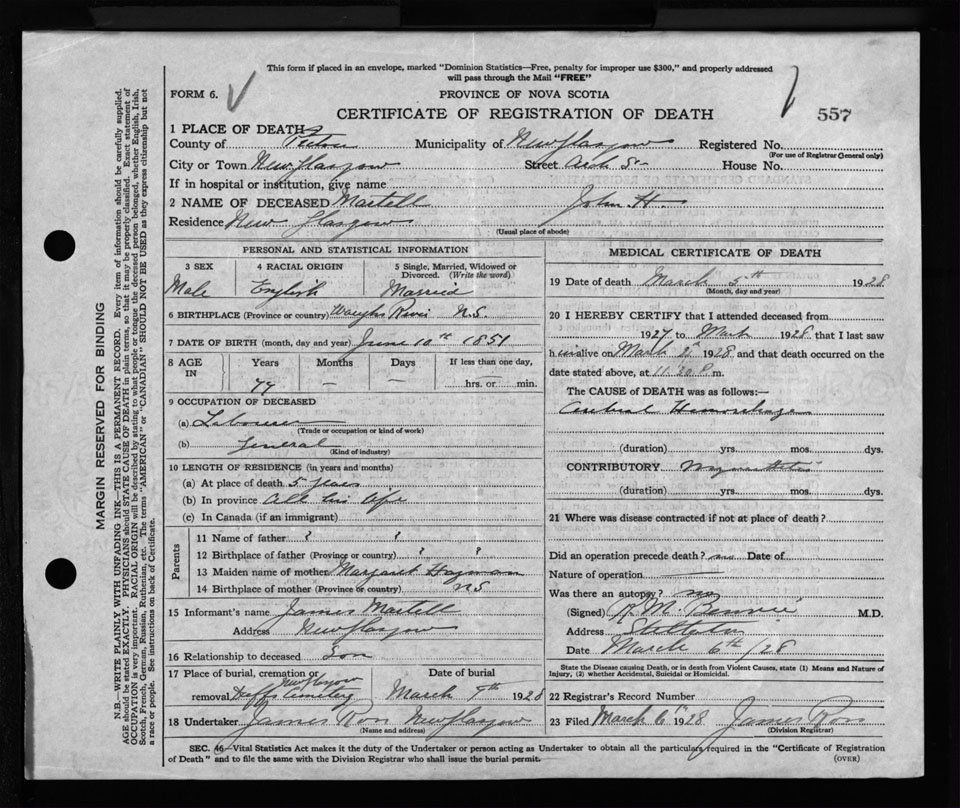 This form if placed in an envelope, marked "Dominion Statistics—Free, penalty for improper use $300," and properly addressed
will pass through the Mail "FREE"
FORM 6.
PROVINCE OF NOVA SCOTIA
CERTIFICATE OF REGISTRATION OF DEATH
557
1 PLACE OF DEATH
County of Pictou Municipality of New Glasgow Registered No.
(For use of Registrar General only)
City or Town New Glasgow Street House No.
If in hospital or institution, give name
2 NAME OF DECEASED Martell John H
Residence New Glasgow
(Usual place of abode)
PERSONAL AND STATISTICAL INFORMATION
3 SEX 4 RACIAL ORIGIN 5 Single, Married, Widowed or
Divorced. (Write the word)
Male English Married
6 BIRTHPLACE (Province or country) N.S.
7 DATE OF BIRTH (month, day and year) June 10th 1851
8 AGE IN Years Months Days If less than one day,
77 — — hrs. or min.
9 OCCUPATION OF DECEASED
(a) Laborer
(Trade or occupation or kind of work)
(b) General
(Kind of industry)
10 LENGTH OF RESIDENCE (in years and months)
(a) At place of death 5 years
(b) In province All his life
(c) In Canada (if an immigrant)
Parents
11 Name of father ? ?
12 Birthplace of father (Province or country) ? ?
13 Maiden name of mother Margaret Hayman
14 Birthplace of mother (Province or country) N S
15 Informant's name James Martell
Address New Glasgow
16 Relationship to deceased Son
17 Place of burial, cremation or Date of burial
New Glasgow
removal Cemetery March 1928
18 Undertaker James Ross New Glasgow
(Name and address)
MEDICAL CERTIFICATE OF DEATH
19 Date of death March 5th 1928
(Month, day and year)
20 I HEREBY CERTIFY that I attended deceased from
1927 to March 1928 that I last saw
him alive on March 1928 and that death occurred on
date stated above, at 11.20 P.m.
The CAUSE OF DEATH was as follows:—
Cerebral Hemorrhage
(duration) yrs. mos. dys.
CONTRIBUTORY
(duration) yrs. mos. dys.
21 Where was disease contracted if not at place of death?
Did an operation precede death? no Date of
Nature of operation —
Was there an autopsy? no
(Signed) M.D.
Address Stellarton
Date March 6th/28
State the Disease causing Death, or in death from Violent Causes, state (1) Means and Nature of
Injury, (2) whether Accidental, Suicidal or Homicidal.
22 Registrar's Record Number
23 Filed March 6th 1928 James Ross
(Division Registrar)
SEC. 46—Vital Statistics Act makes it the duty of the Undertaker or person acting as Undertaker to obtain all the particulars required in the "Certificate of Registration
of Death" and to file the same with the Division Registrar who shall issue the burial permit.
(OVER)
MARGIN RESERVED FOR BINDING
N.B.—WRITE PLAINLY WITH UNFADING INK—THIS IS A PERMANENT RECORD. Every item of information should be carefully supplied.
AGE should be stated EXACTLY. PHYSICIANS should STATE CAUSE OF DEATH in plain terms, so that it may be properly classified. Exact statement of
OCCUPATION is very important. RACIAL ORIGIN will be described by stating to what people or tongue the deceased person belonged, whether English, Irish,
Scotch, French, German, Russian, Ruthenian, etc. The terms "AMERICAN" or "CANADIAN" SHOULD NOT BE USED as they express citizenship but not
a race or people. See instructions on back of Certificate.